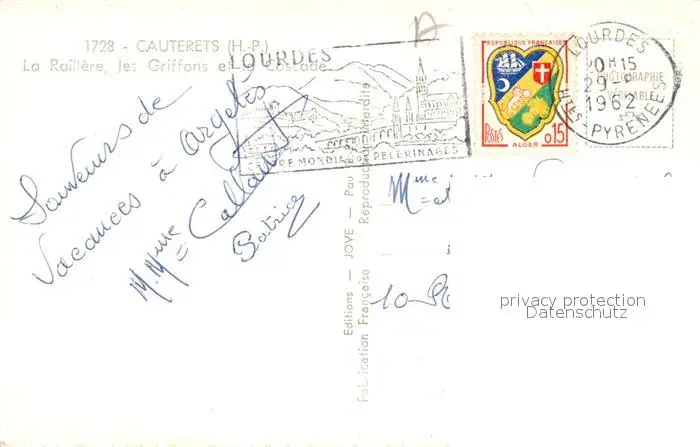 1728 - CAUTERETS (H.-P.)
La Raillère, les Griffons et Cascade
Souvenirs de
Vacances à Argelès
M. Mme
Patrice
LOURDES
MONDIAL DE PELERINAGES
REPUBLIQUE FRANÇAISE
POSTES 0,15
ALGER
LOURDES
29
1962
HTES PYRENEES
PHOTOGRAPHIE
VERITABLE
Editions - JOVE - Pau
Fabrication Française
Reproduction interdite
Mme et
10
privacy protection
Datenschutz